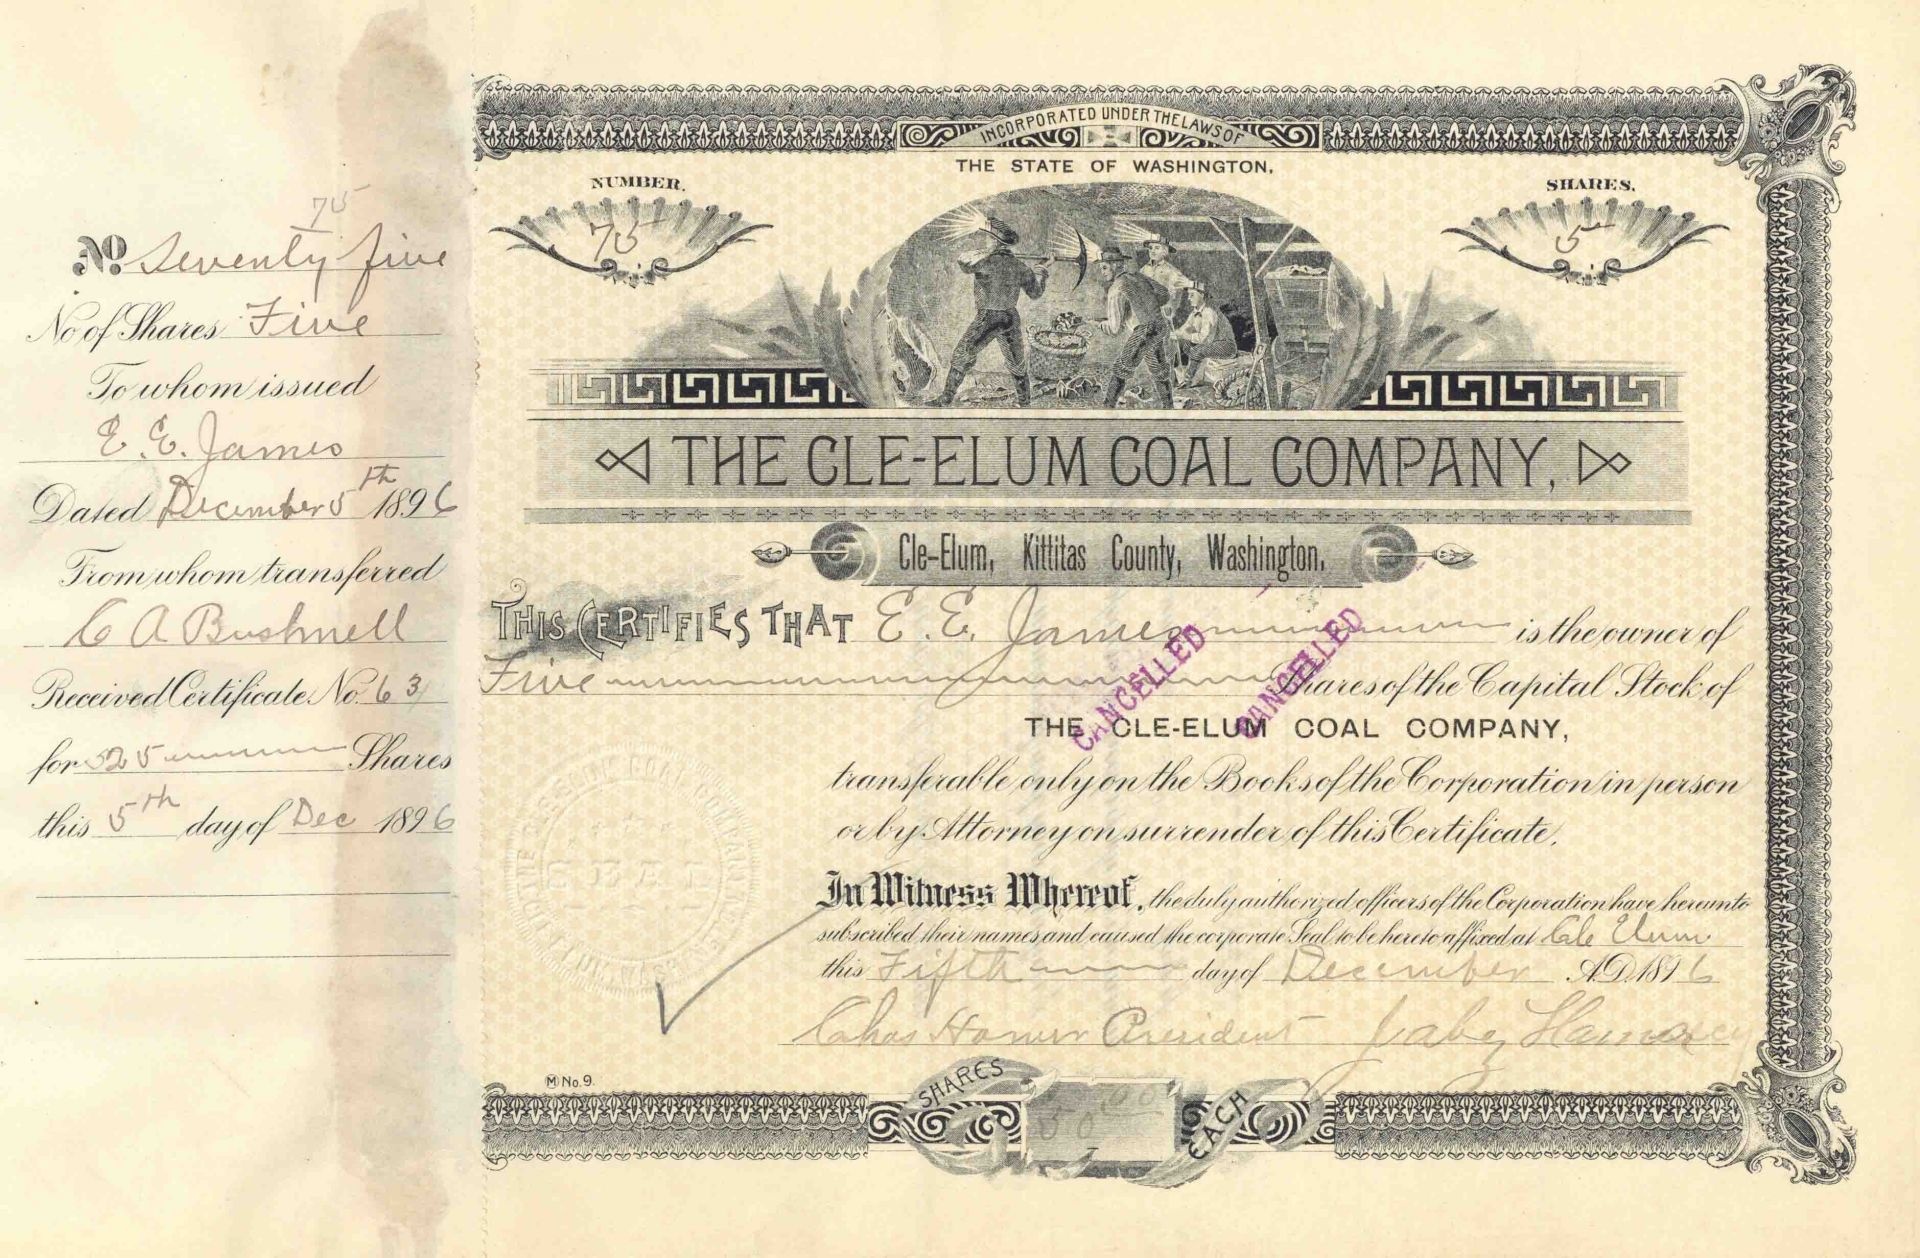 75
No Seventy five
No of Shares Five
To whom issued
E. E. James
Dated December 5th 1896
From whom transferred
C A Bushnell
Received Certificate No. 63
for 525 Shares
this 5th day of Dec 1896
INCORPORATED UNDER THE LAWS OF
THE STATE OF WASHINGTON.
NUMBER.
75
SHARES.
5
THE CLE-ELUM COAL COMPANY,
Cle-Elum, Kittitas County, Washington.
THIS CERTIFIES THAT E. E. James is the owner of
Five Shares of the Capital Stock of
CANCELLED
CANCELLED
THE CLE-ELUM COAL COMPANY,
transferable only on the Books of the Corporation in person
or by Attorney on surrender of this Certificate.
In Witness Whereof, the duly authorized officers of the Corporation have hereunto
subscribed their names and caused the corporate Seal to be hereto affixed at Cle Elum
this Fifth day of December A.D. 1896
Chas President Jabez
SEAL
M No. 9.
SHARES
EACH